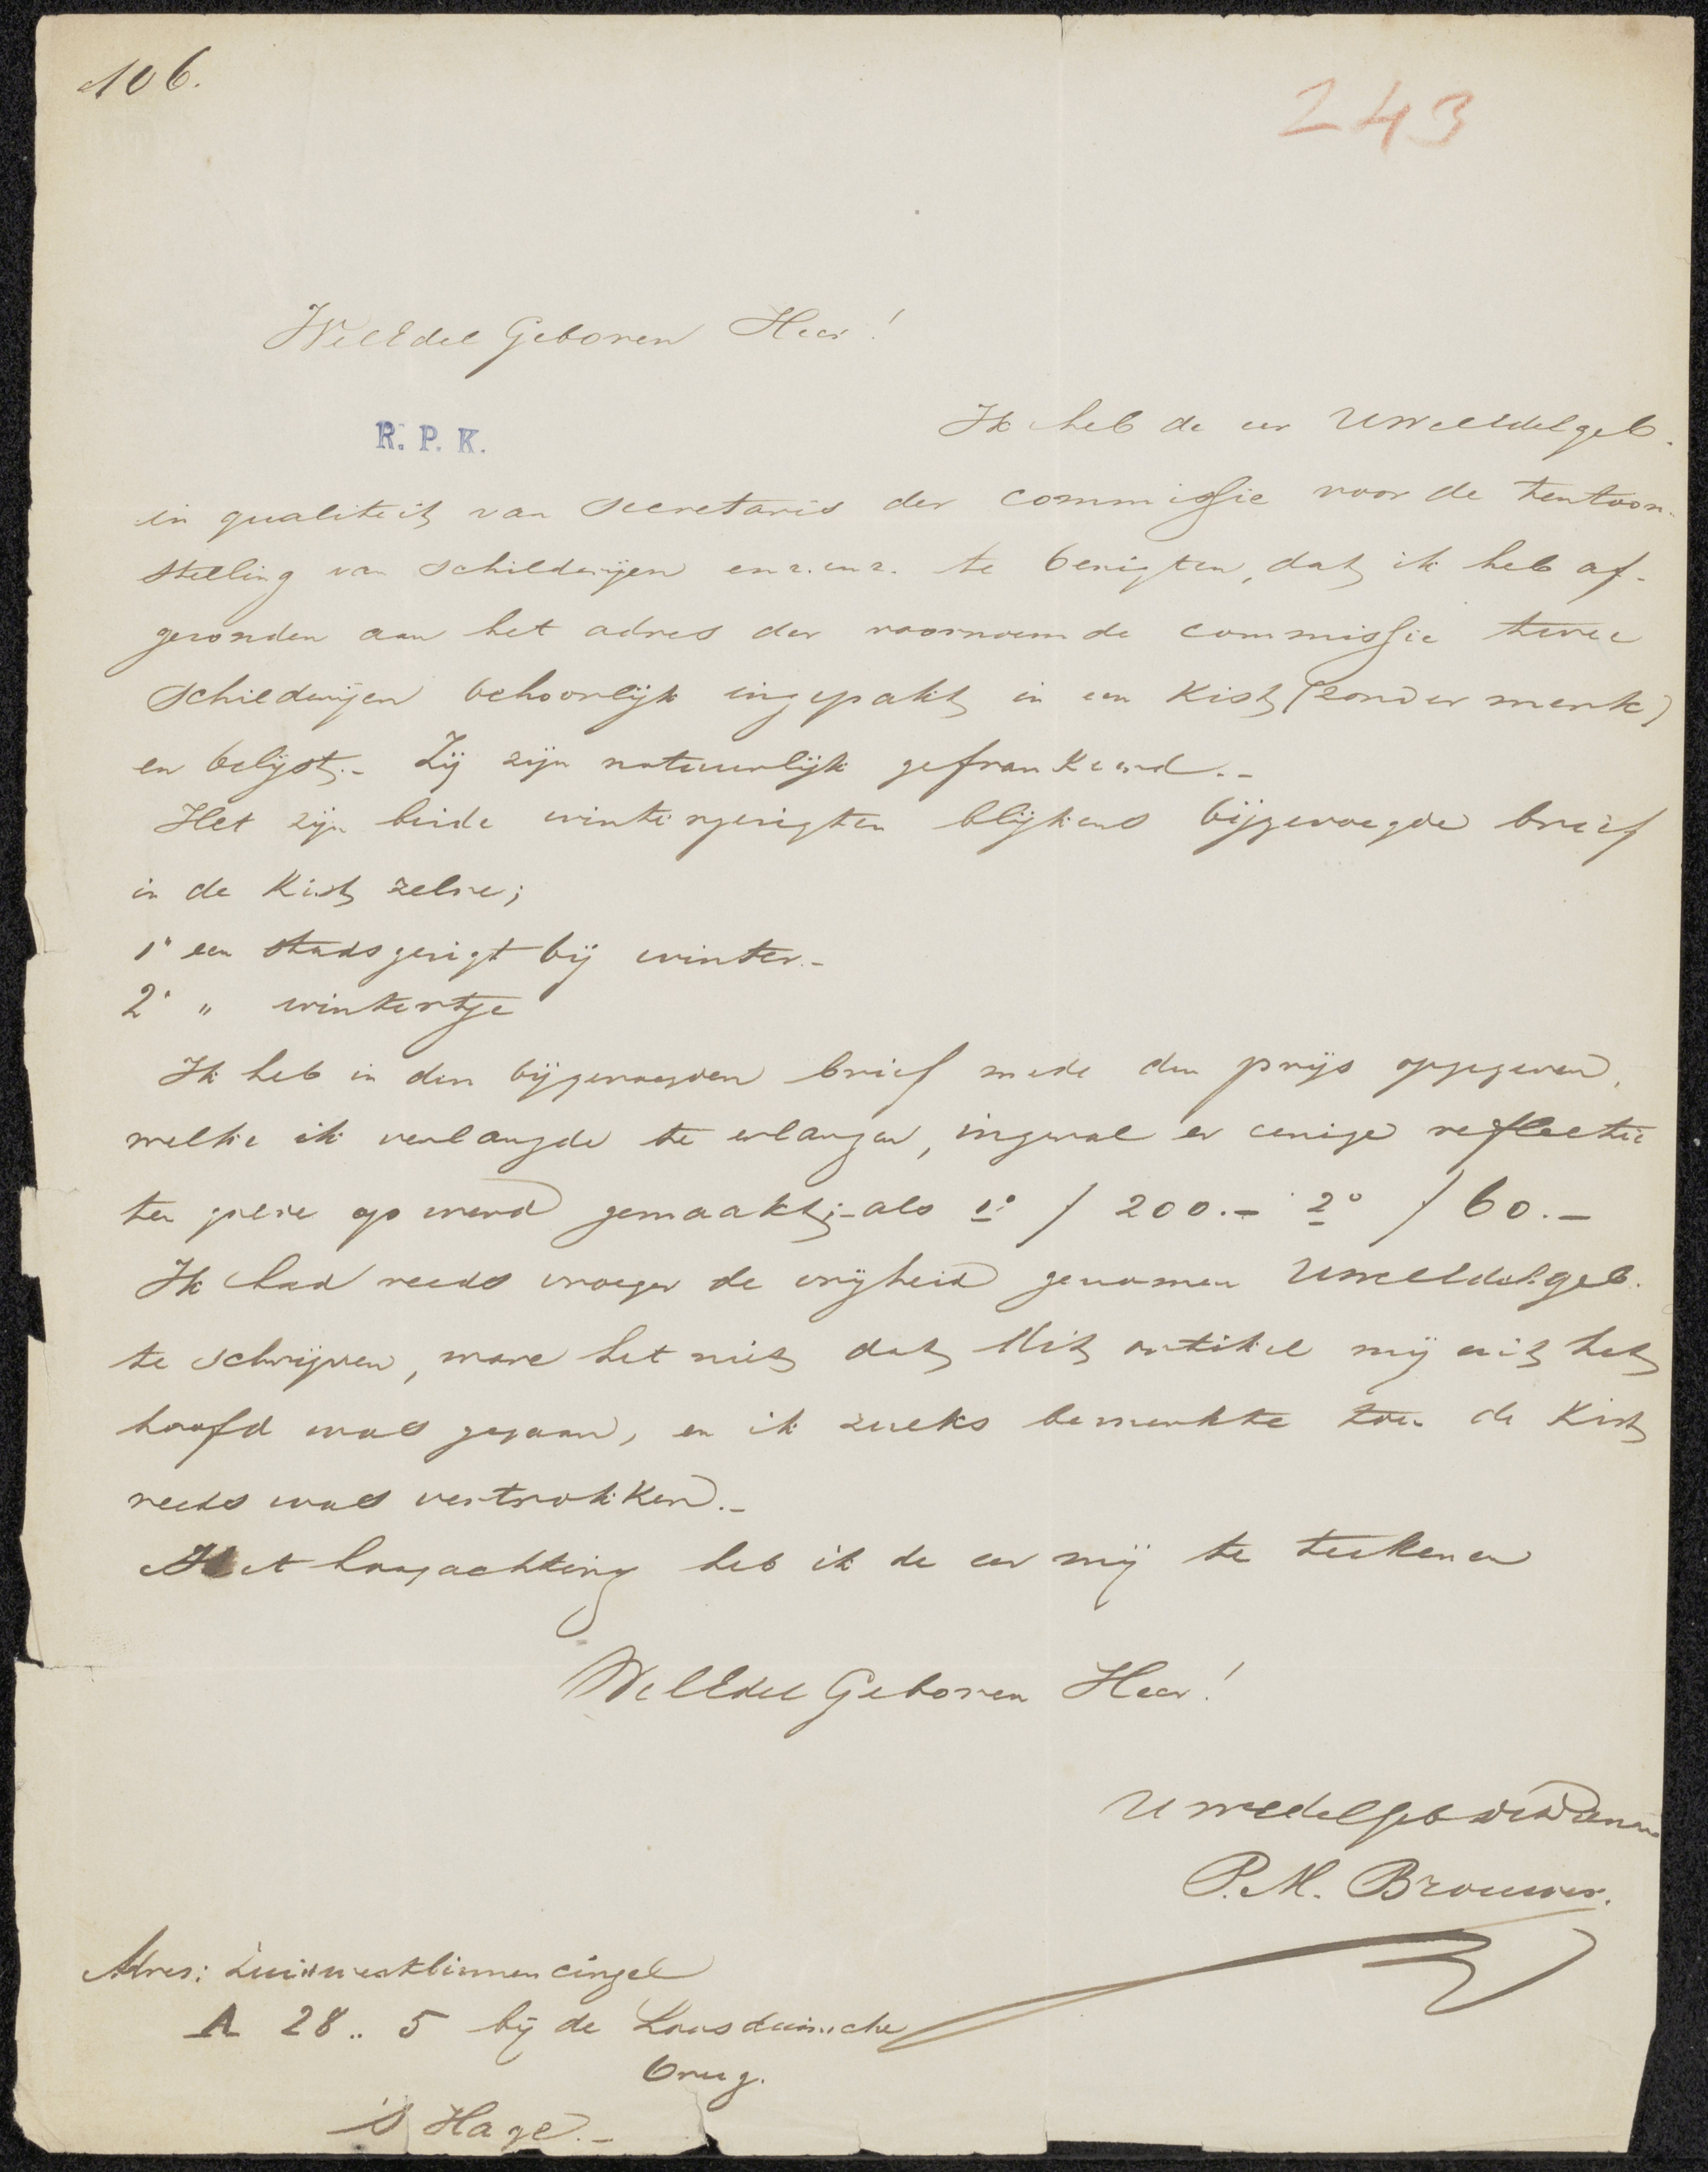 106.
243
WelEdel Geboren Heer!
R. P. K.
Ik heb de eer UWelEdelgeb.
in qualiteit van Secretaris der commissie voor de tentoon-
stelling van schilderijen enz. enz. te berigten, dat ik heb af-
gezonden aan het adres der voornoemde commissie twee
schilderijen behoorlijk ingepakt in een Kist (zonder merk)
en belijst.- Zij zijn natuurlijk gefrankeerd.-
Het zijn beide wintergezigten blijkens bijgevoegde brief
in de Kist zelve;
1° een stadsgezigt bij winter.-
2° " wintertje
Ik heb in den bijgevoegden brief mede den prijs opgegeven,
welke ik verlangde te erlangen, ingeval er eenige reflectie
ten op werd gemaakt;- als 1° f 200.- 2° f 60.-
Ik had reeds vroeger de vrijheid genomen UWelEdelgeb.
te schrijven, ware het niet dat dit artikel mij uit het
hoofd was gegaan, en ik zulks bemerkte toen de Kist
reeds was vertrokken.-
Met hoogachting heb ik de eer mij te teekenen
WelEdel Geboren Heer!
UWEdelgeb dw Dienaar
P. M. Brouwer.
Adres: Zuidwestbinnencingel
A 28.. 5 bij de Loosduinsche
brug.
's Hage.-